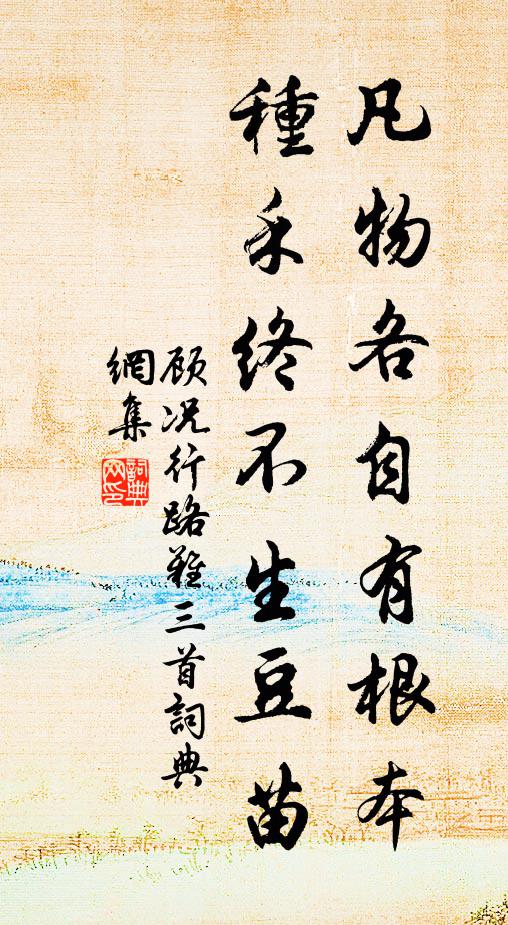 凡物各自有根本
種禾終不生豆苗
顾况行路难三首詞典
網集
詞典
网印